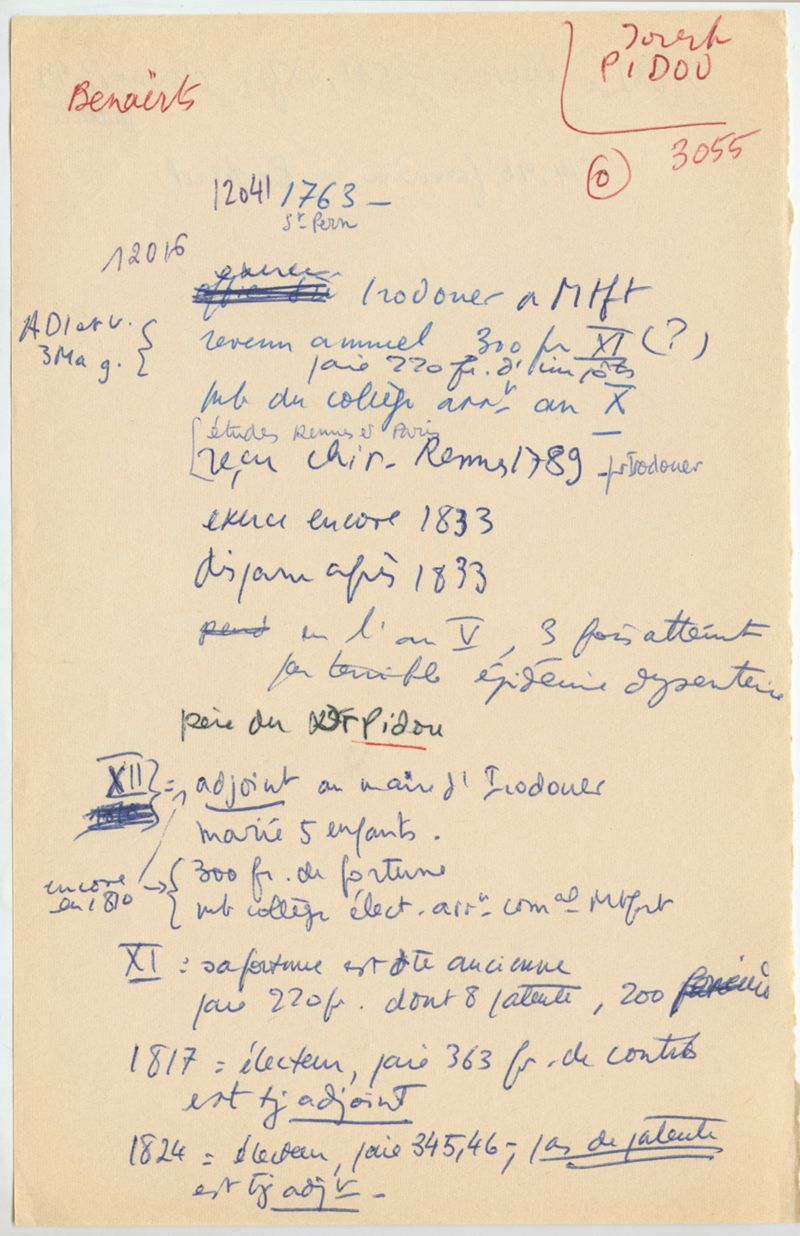 Joseph
PIDOU
Benaërts
3055
0
12041 1763 –
St Pern
12016
exerce
Irodouer a Mtft
ADI et V.
3Ma g.
revenu annuel 300 fr XI (?)
paie 220 fr. d'impôts
mb du collège arrt an X
études Rennes et Paris
reçu chir. Rennes 1789 - pr Irodouer
exerce encore 1833
disparu après 1833
en l'an V, 3 fois atteint
par terrible épidémie dysenterie
père du Dr Pidou
XII = adjoint au maire d'Irodouer
marié 5 enfants.
encore
en 1810
300 fr. de fortune
mb collège élect. arrt comal Mtfort
XI : sa fortune est dte ancienne
paie 220 fr. dont 8 patente, 200
1817 = électeur, paie 363 fr. de contrib
est tj adjoint
1824 = électeur, paie 345,46 -, pas de patente
est tj adjt -